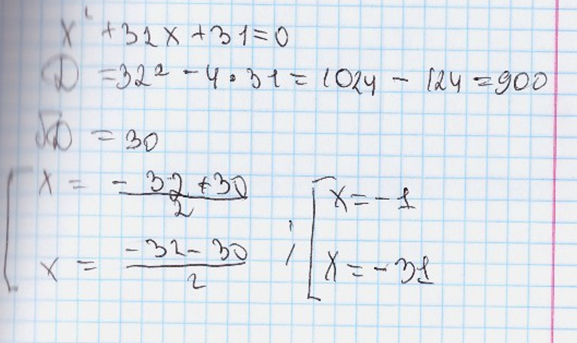 x² + 32x + 31 = 0
D = 32² - 4 · 31 = 1024 - 124 = 900
√D = 30
[ x = (-32 + 30)/2 ; [ x = -1
x = (-32 - 30)/2 x = -31